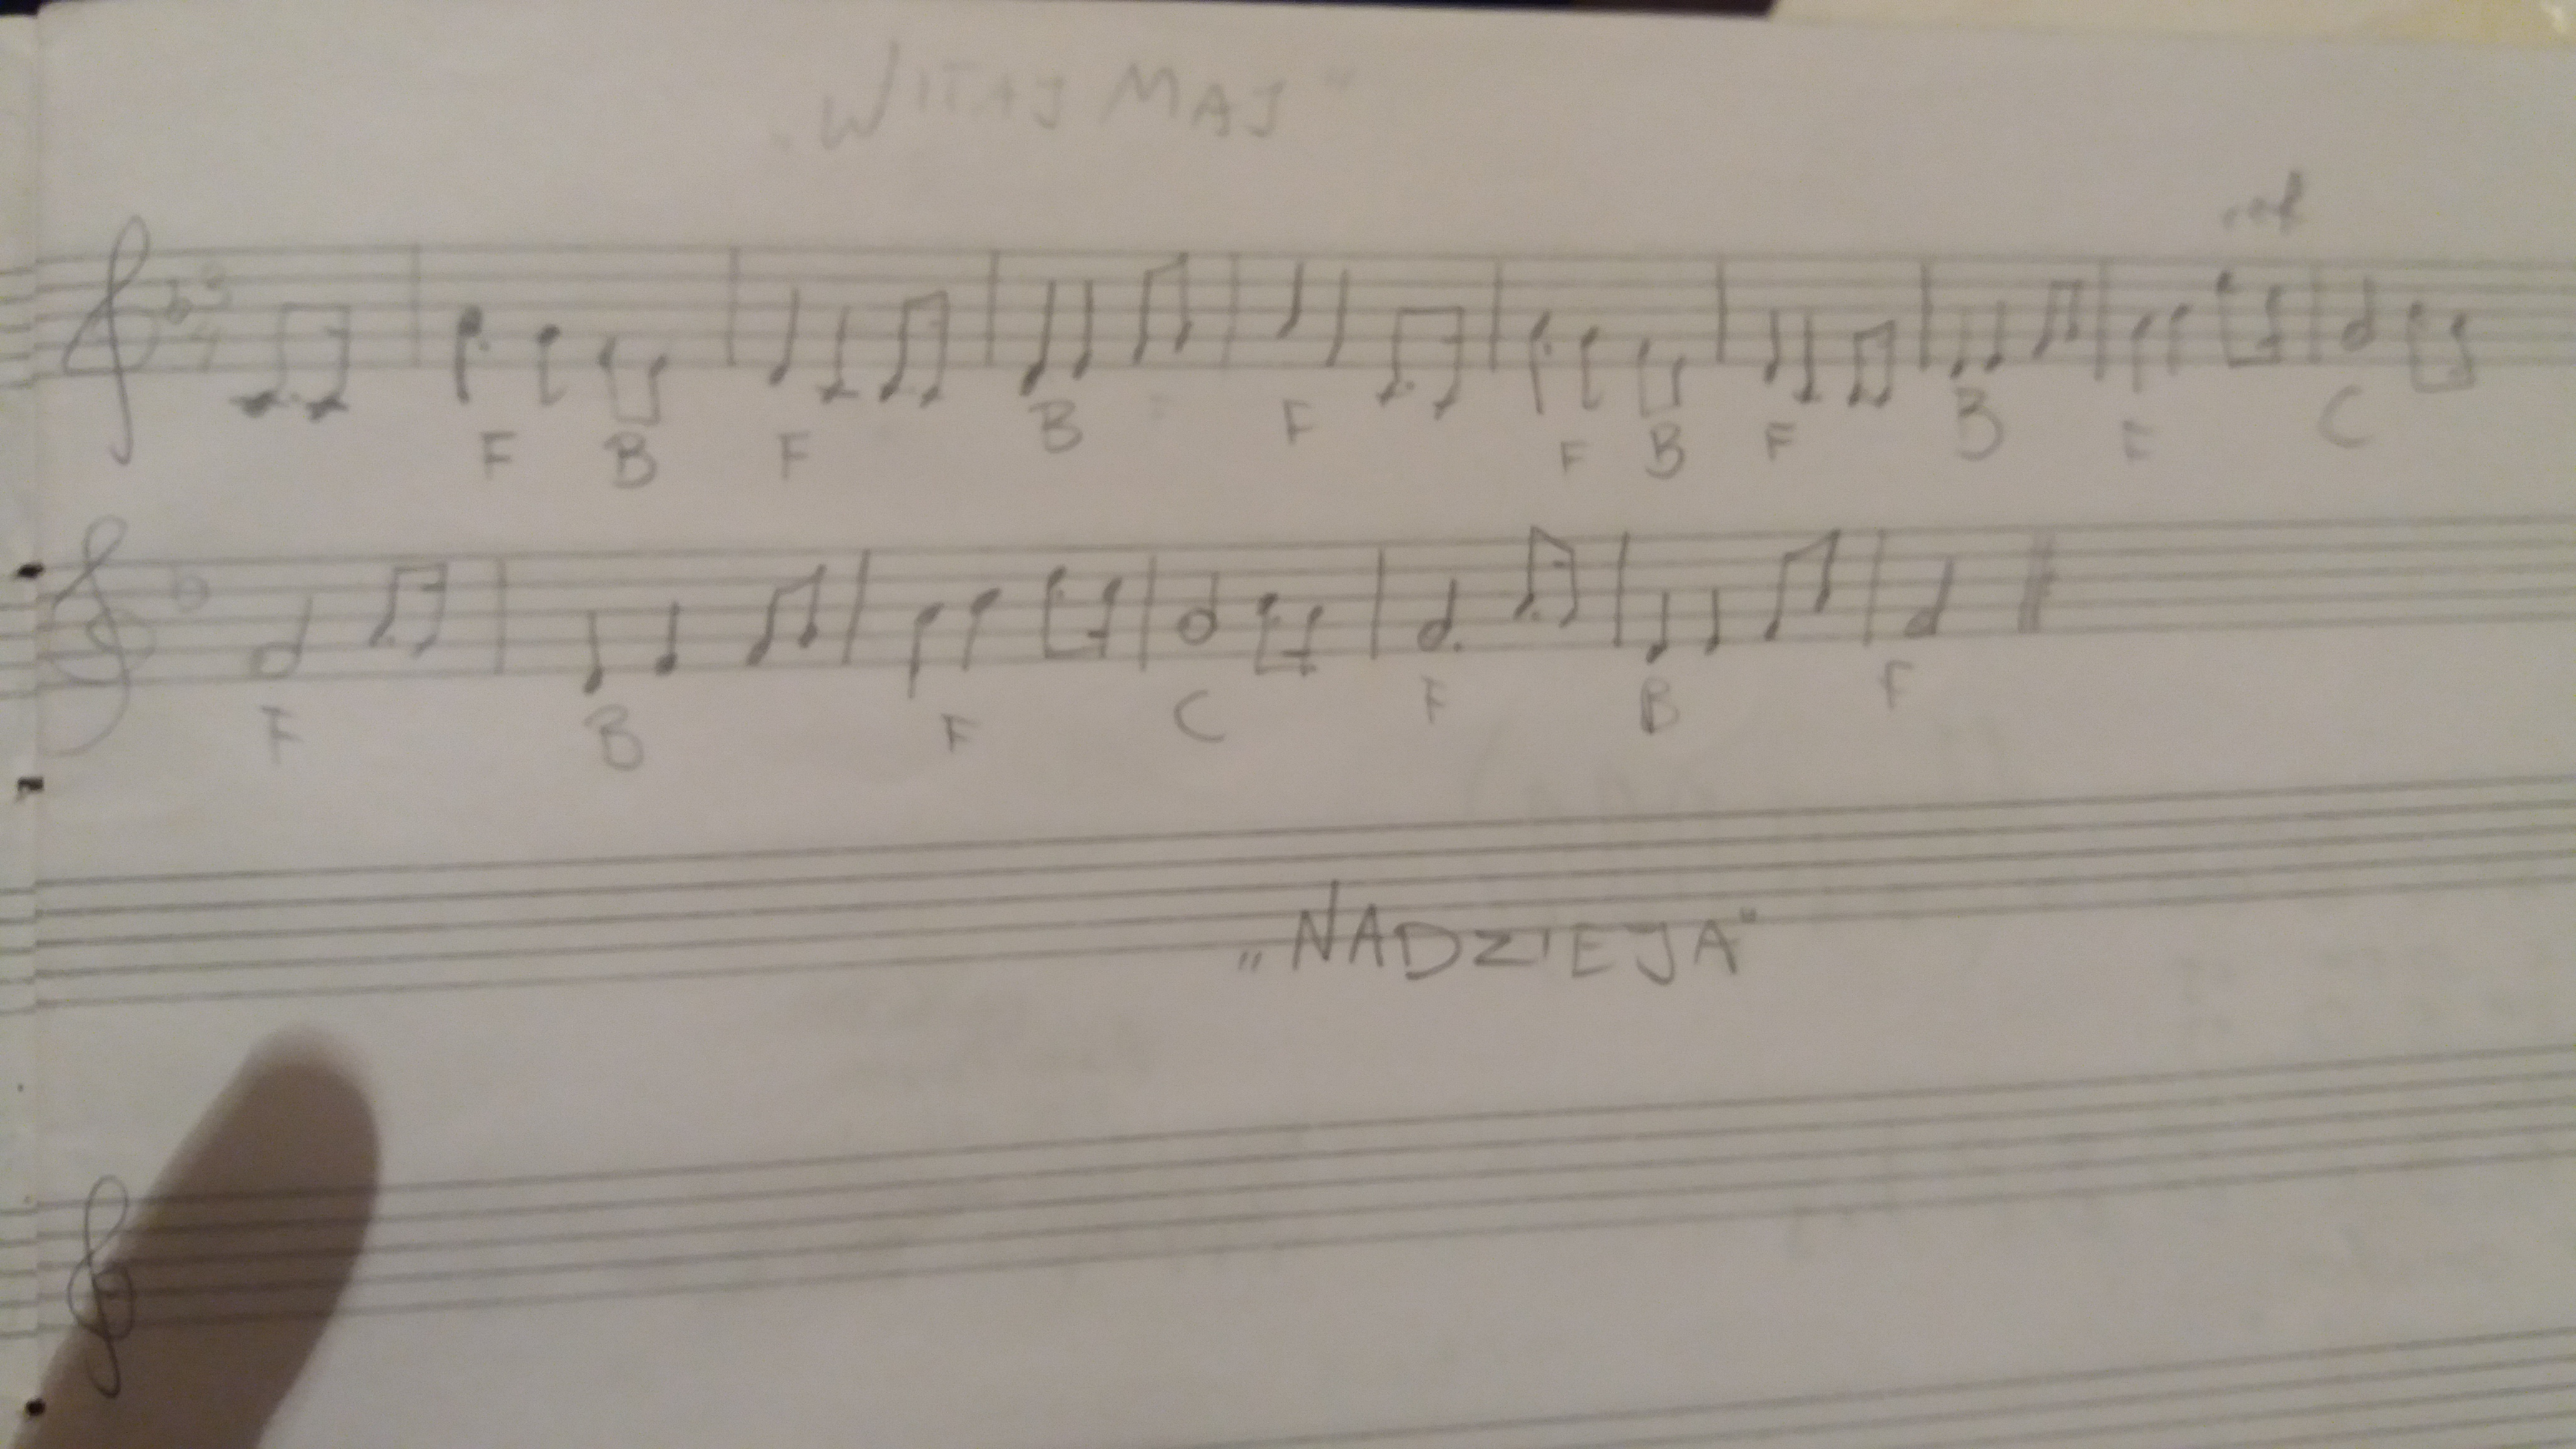 „WITAJ MAJ"
3
4
ref
F B F B F F B F B F C
F B F C F B F
„NADZIEJA"